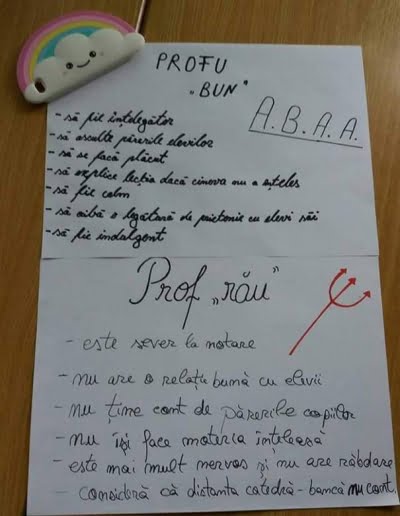 PROFU
„BUN"
A.B.A.A.
- să fie înțelegător
- să asculte părerile elevilor
- să se facă plăcut
- să explice lecția dacă cineva nu a înțeles
- să fie calm
- să aibă o legătură de prietenie cu elevi săi
- să fie indulgent
Prof „rău"
- este sever la notare
- nu are o relație bună cu elevii
- nu ține cont de părerile copiilor
- nu își face materia înțeleasă
- este mai mult nervos și nu are răbdare
- consideră că distanta catedră-bancă nu cont.